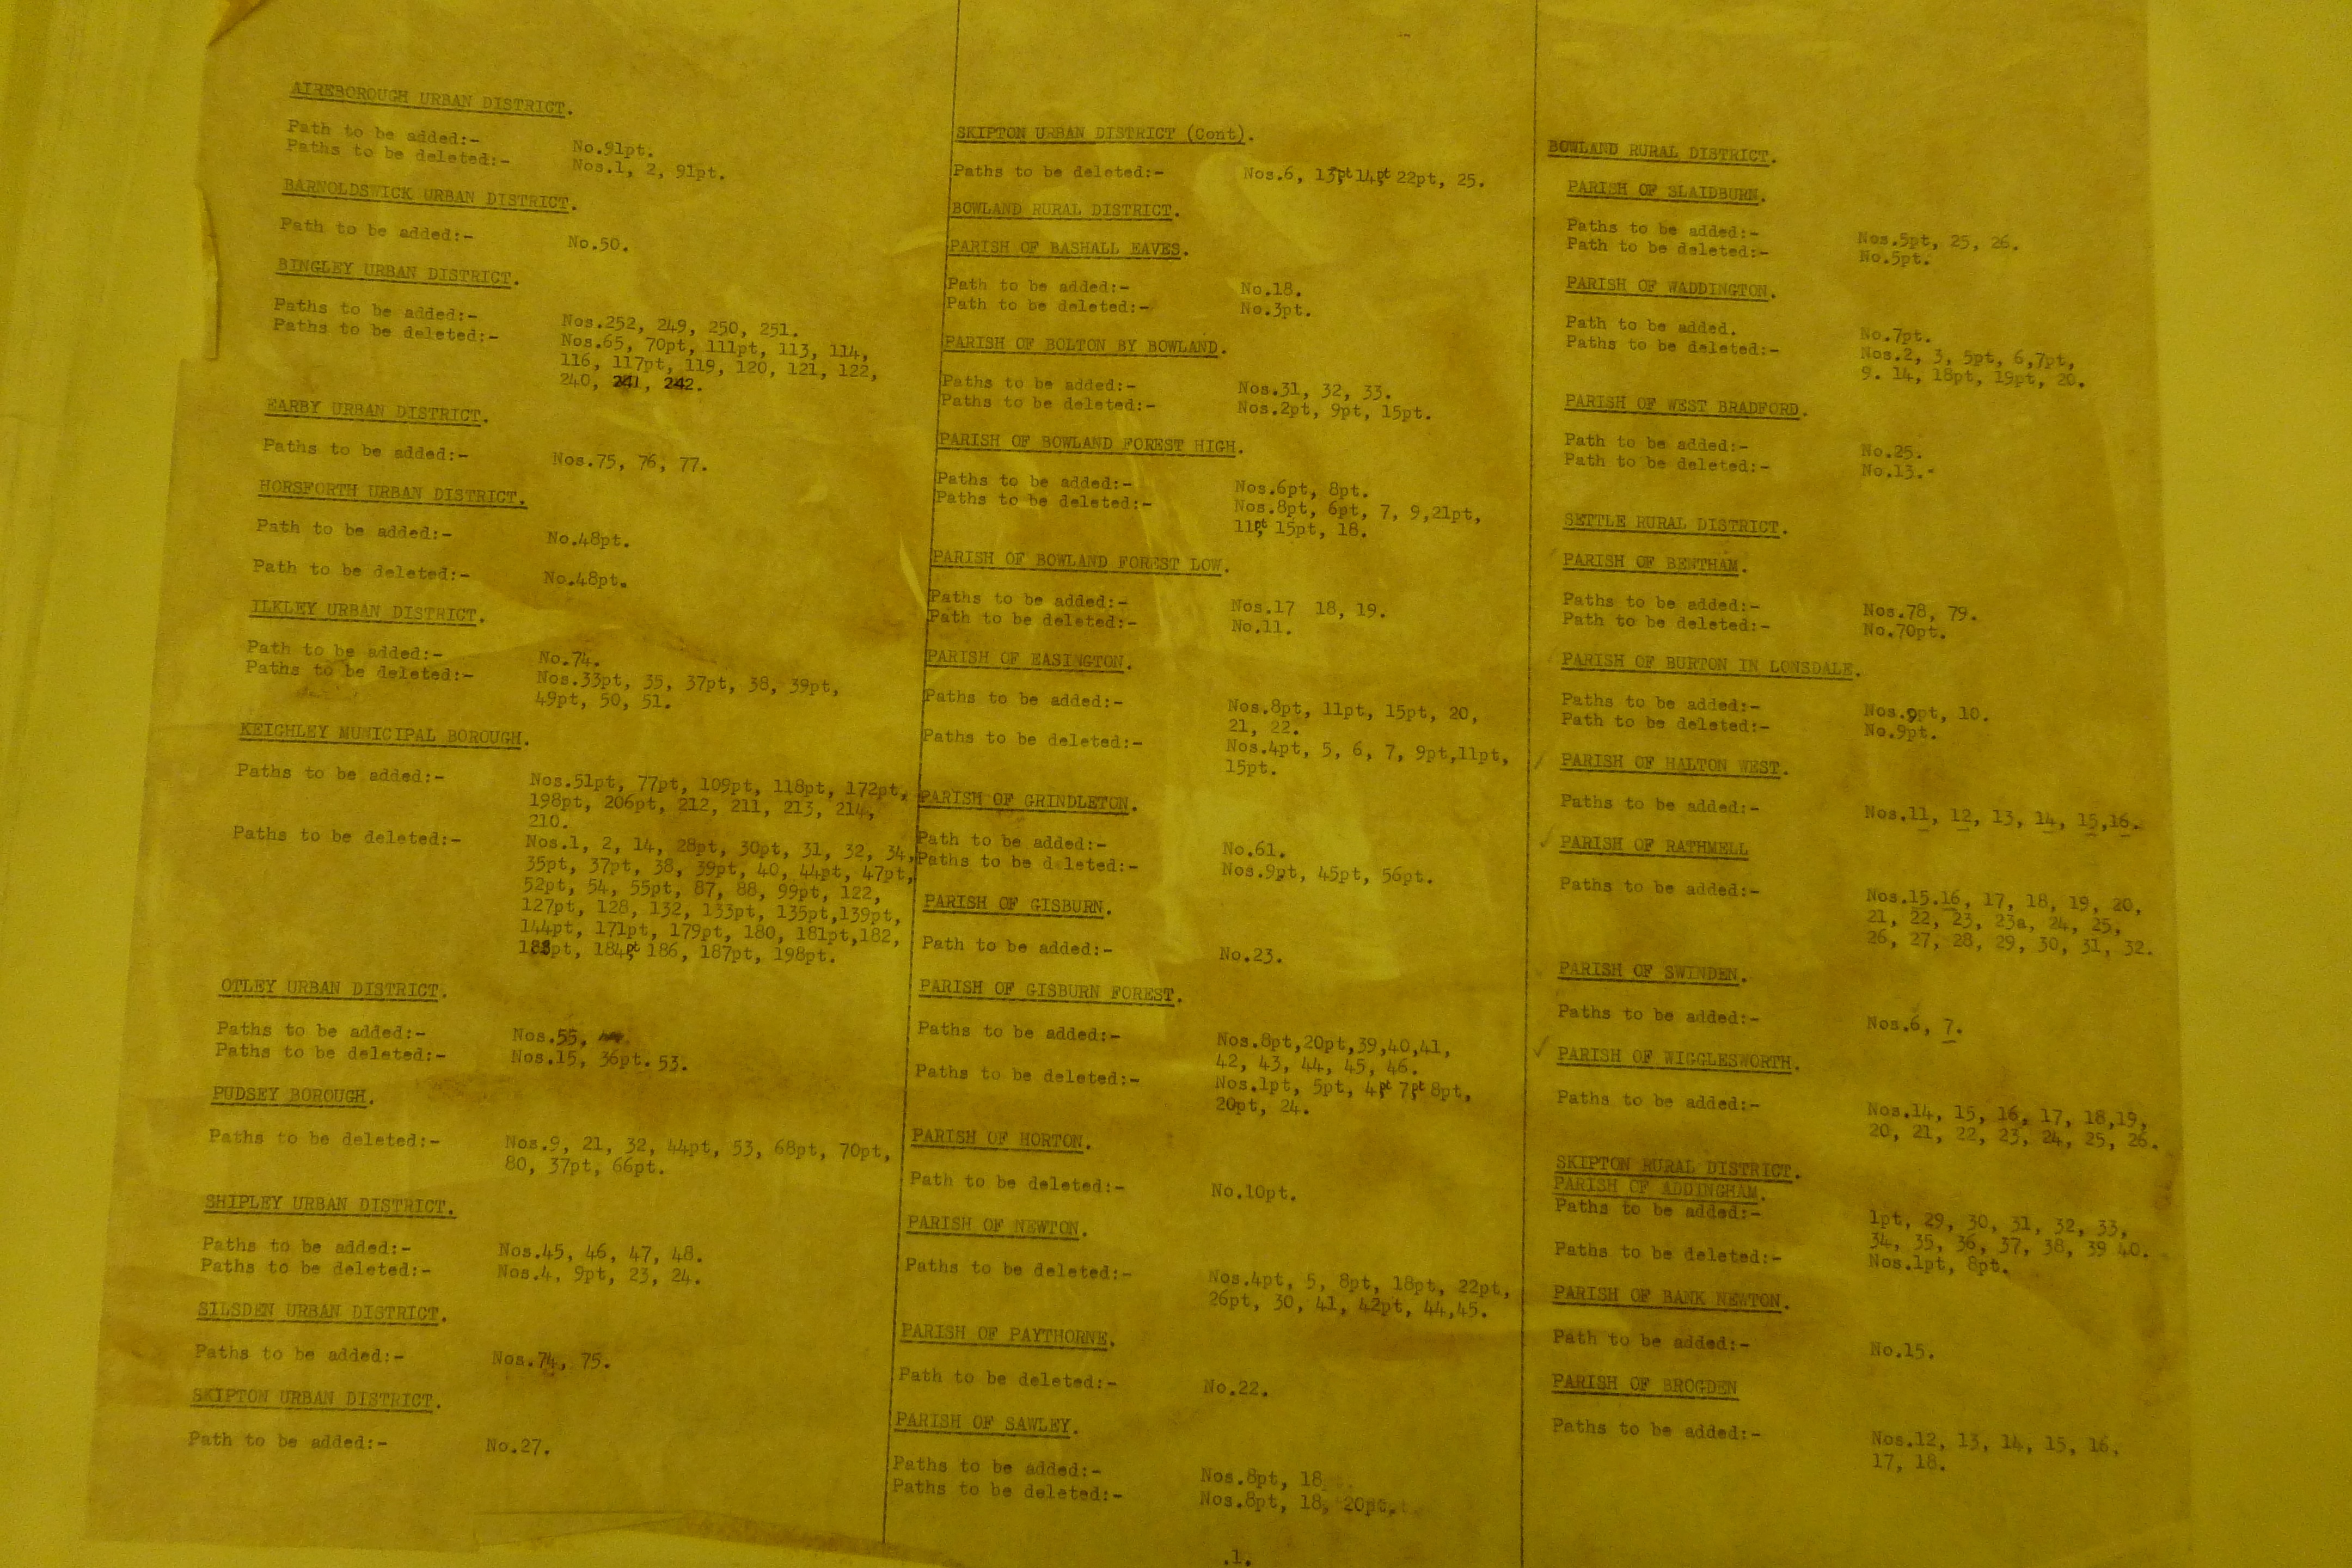 AIREBOROUGH URBAN DISTRICT.
Path to be added:- No.91pt.
Paths to be deleted:- Nos.1, 2, 91pt.
BARNOLDSWICK URBAN DISTRICT.
Path to be added:- No.50.
BINGLEY URBAN DISTRICT.
Paths to be added:- Nos.252, 249, 250, 251.
Paths to be deleted:- Nos.65, 70pt, 111pt, 113, 114,
116, 117pt, 119, 120, 121, 122,
240, 241, 242.
EARBY URBAN DISTRICT.
Paths to be added:- Nos.75, 76, 77.
HORSFORTH URBAN DISTRICT.
Path to be added:- No.48pt.
Path to be deleted:- No.48pt.
ILKLEY URBAN DISTRICT.
Path to be added:- No.74.
Paths to be deleted:- Nos.33pt, 35, 37pt, 38, 39pt,
49pt, 50, 51.
KEIGHLEY MUNICIPAL BOROUGH.
Paths to be added:- Nos.51pt, 77pt, 109pt, 118pt, 172pt,
198pt, 206pt, 212, 211, 213, 214,
210.
Paths to be deleted:- Nos.1, 2, 14, 28pt, 30pt, 31, 32, 34,
35pt, 37pt, 38, 39pt, 40, 44pt, 47pt,
52pt, 54, 55pt, 87, 88, 99pt, 122,
127pt, 128, 132, 133pt, 135pt,139pt,
144pt, 171pt, 179pt, 180, 181pt,182,
183pt, 184pt 186, 187pt, 198pt.
OTLEY URBAN DISTRICT.
Paths to be added:- Nos.55,
Paths to be deleted:- Nos.15, 36pt. 53.
PUDSEY BOROUGH.
Paths to be deleted:- Nos.9, 21, 32, 44pt, 53, 68pt, 70pt,
80, 37pt, 66pt.
SHIPLEY URBAN DISTRICT.
Paths to be added:- Nos.45, 46, 47, 48.
Paths to be deleted:- Nos.4, 9pt, 23, 24.
SILSDEN URBAN DISTRICT.
Paths to be added:- Nos.74, 75.
SKIPTON URBAN DISTRICT.
Path to be added:- No.27.
SKIPTON URBAN DISTRICT (Cont).
Paths to be deleted:- Nos.6, 13pt 14pt 22pt, 25.
BOWLAND RURAL DISTRICT.
PARISH OF BASHALL EAVES.
Path to be added:- No.18.
Path to be deleted:- No.3pt.
PARISH OF BOLTON BY BOWLAND.
Paths to be added:- Nos.31, 32, 33.
Paths to be deleted:- Nos.2pt, 9pt, 15pt.
PARISH OF BOWLAND FOREST HIGH.
Paths to be added:- Nos.6pt, 8pt.
Paths to be deleted:- Nos.8pt, 6pt, 7, 9,21pt,
11pt 15pt, 18.
PARISH OF BOWLAND FOREST LOW.
Paths to be added:- Nos.17 18, 19.
Path to be deleted:- No.11.
PARISH OF EASINGTON.
Paths to be added:- Nos.8pt, 11pt, 15pt, 20,
21, 22.
Paths to be deleted:- Nos.4pt, 5, 6, 7, 9pt,11pt,
15pt.
PARISH OF GRINDLETON.
Path to be added:- No.61.
Paths to be deleted:- Nos.9pt, 45pt, 56pt.
PARISH OF GISBURN.
Path to be added:- No.23.
PARISH OF GISBURN FOREST.
Paths to be added:- Nos.8pt,20pt,39,40,41,
42, 43, 44, 45, 46.
Paths to be deleted:- Nos.1pt, 5pt, 4pt 7pt 8pt,
20pt, 24.
PARISH OF HORTON.
Path to be deleted:- No.10pt.
PARISH OF NEWTON.
Paths to be deleted:- Nos.4pt, 5, 8pt, 18pt, 22pt,
26pt, 30, 41, 42pt, 44,45.
PARISH OF PAYTHORNE.
Path to be deleted:- No.22.
PARISH OF SAWLEY.
Paths to be added:- Nos.8pt, 18
Paths to be deleted:- Nos.8pt, 18, 20pt.
.1.
BOWLAND RURAL DISTRICT.
PARISH OF SLAIDBURN.
Paths to be added:- Nos.5pt, 25, 26.
Path to be deleted:- No.5pt.
PARISH OF WADDINGTON.
Path to be added. No.7pt.
Paths to be deleted:- Nos.2, 3, 5pt, 6,7pt,
9. 14, 18pt, 19pt, 20.
PARISH OF WEST BRADFORD.
Path to be added:- No.25.
Path to be deleted:- No.13.
SETTLE RURAL DISTRICT.
PARISH OF BENTHAM.
Paths to be added:- Nos.78, 79.
Path to be deleted:- No.70pt.
PARISH OF BURTON IN LONSDALE.
Paths to be added:- Nos.9pt, 10.
Path to be deleted:- No.9pt.
PARISH OF HALTON WEST.
Paths to be added:- Nos.11, 12, 13, 14, 15,16.
PARISH OF RATHMELL
Paths to be added:- Nos.15.16, 17, 18, 19, 20,
21, 22, 23, 23a, 24, 25,
26, 27, 28, 29, 30, 31, 32.
PARISH OF SWINDEN.
Paths to be added:- Nos.6, 7.
PARISH OF WIGGLESWORTH.
Paths to be added:- Nos.14, 15, 16, 17, 18,19,
20, 21, 22, 23, 24, 25, 26.
SKIPTON RURAL DISTRICT.
PARISH OF ADDINGHAM.
Paths to be added:- 1pt, 29, 30, 31, 32, 33,
34, 35, 36, 37, 38, 39 40.
Paths to be deleted:- Nos.1pt, 8pt.
PARISH OF BANK NEWTON.
Path to be added:- No.15.
PARISH OF BROGDEN
Paths to be added:- Nos.12, 13, 14, 15, 16,
17, 18.